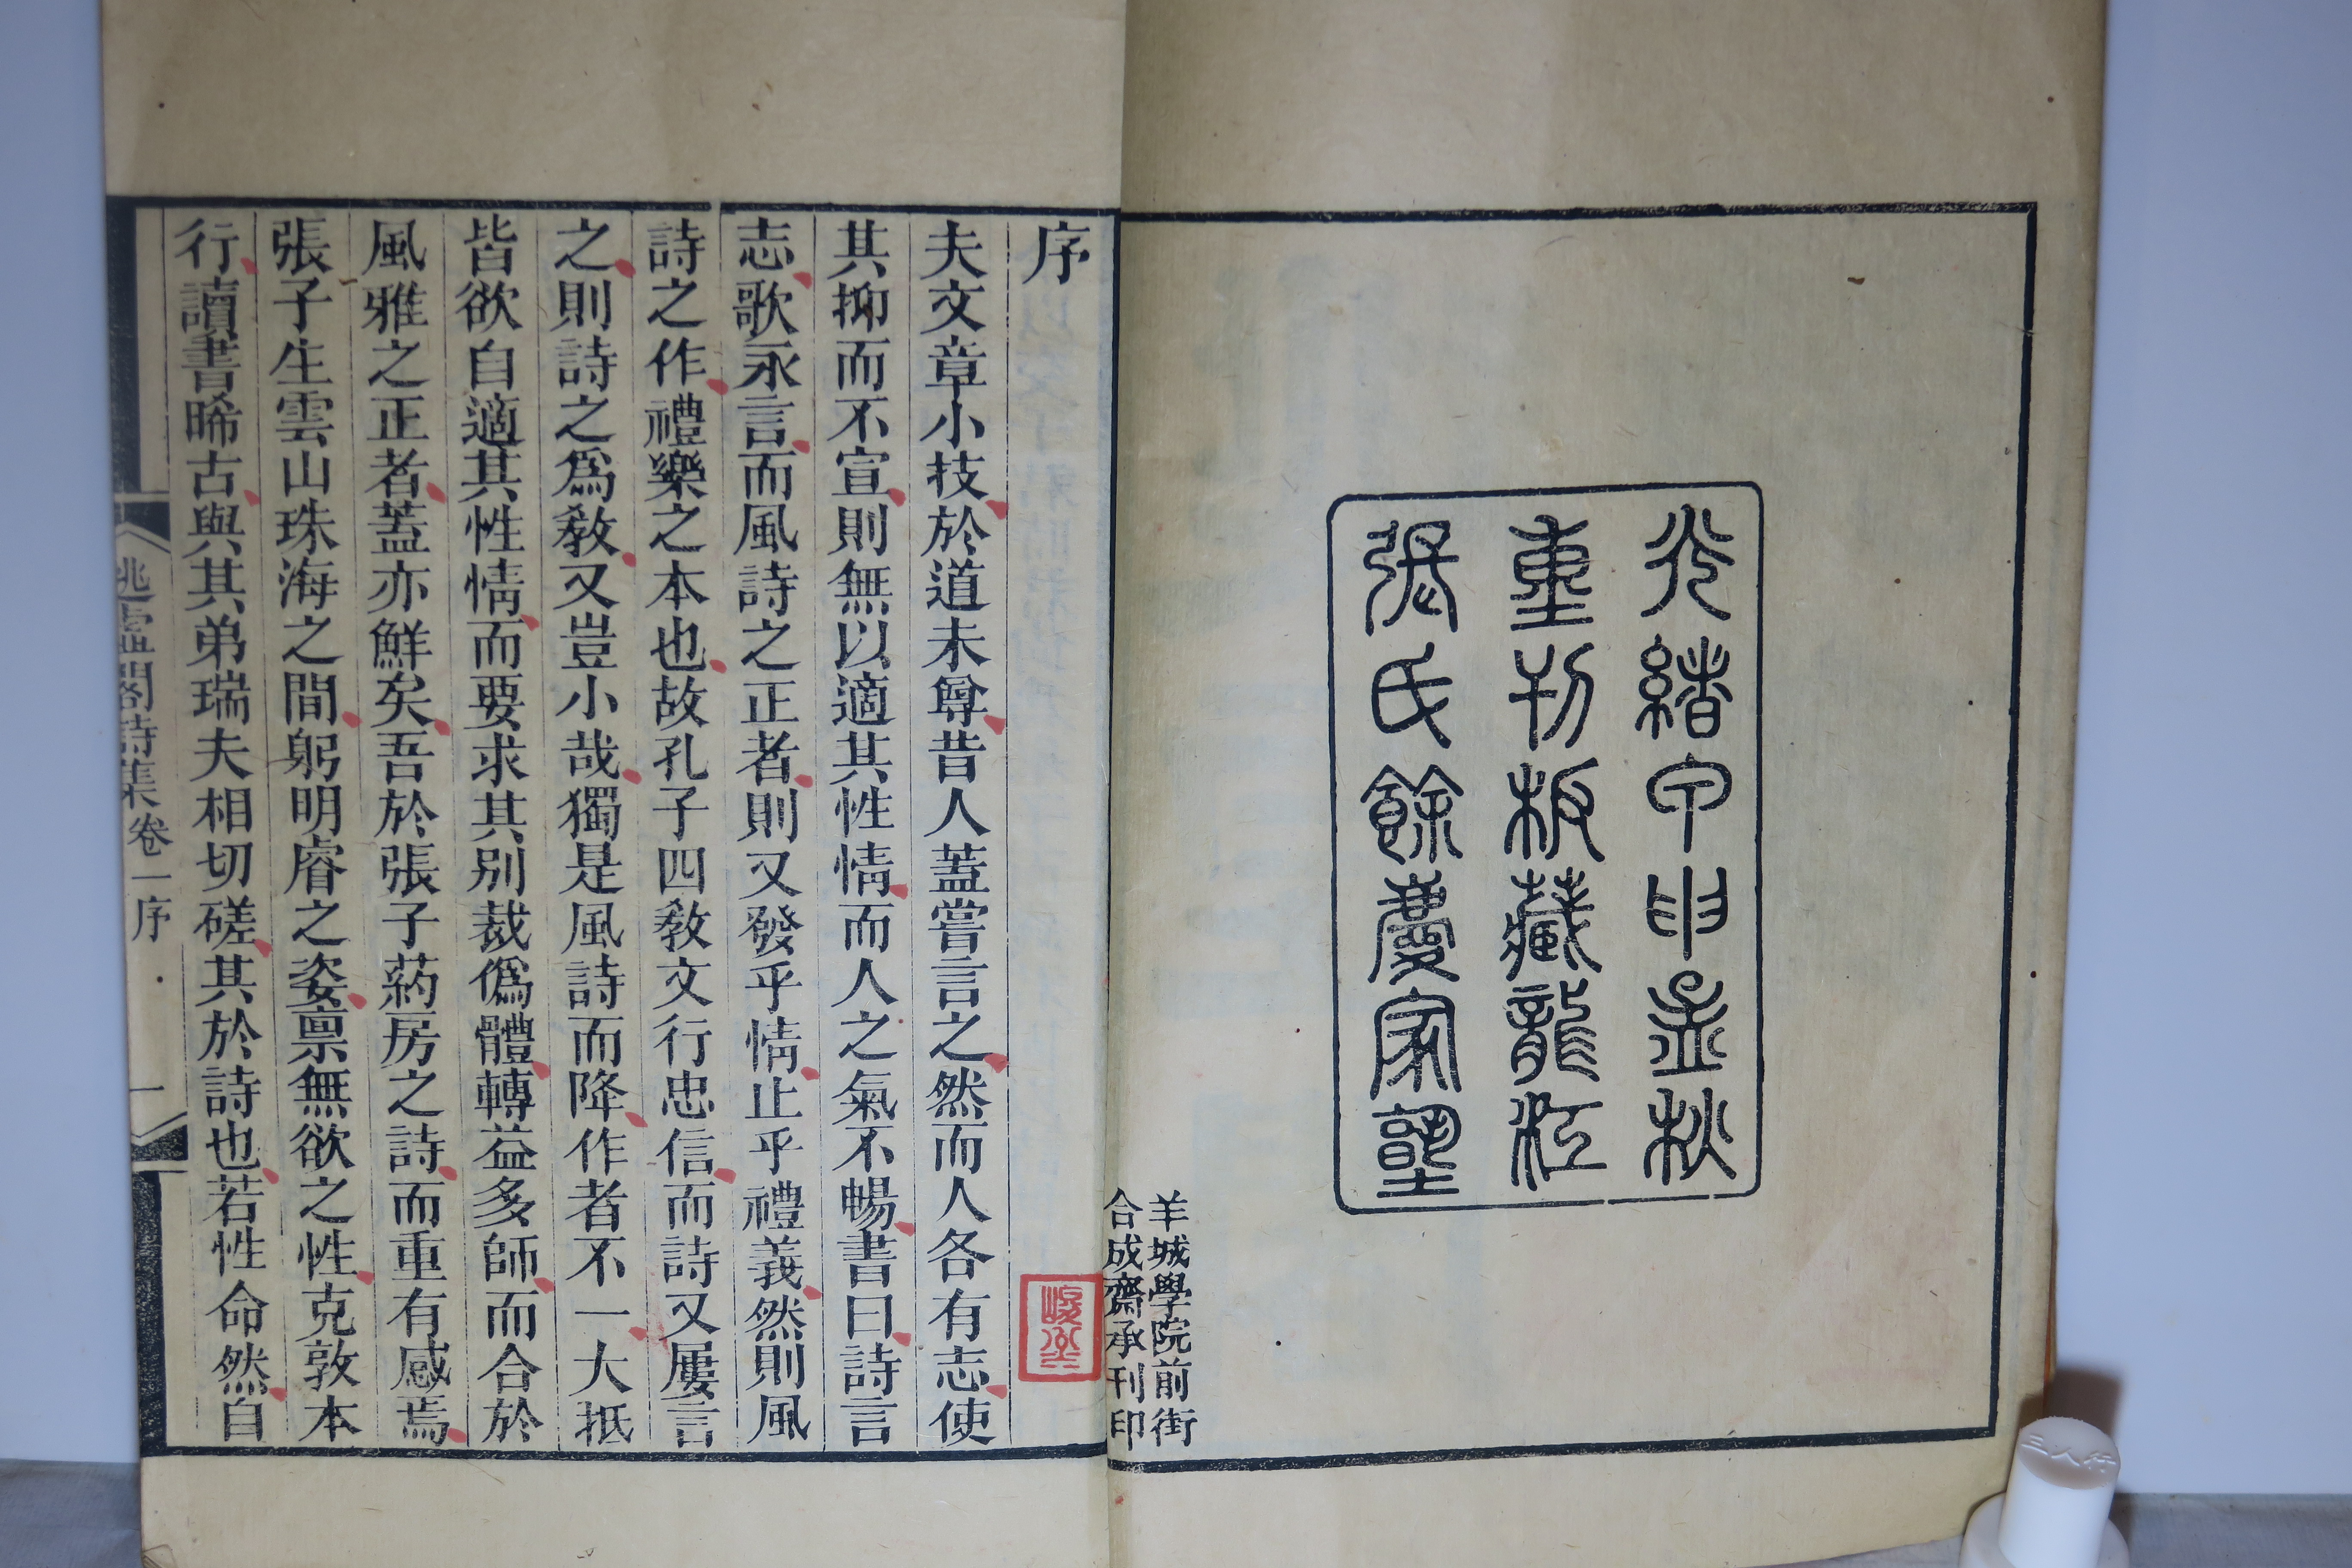 光緒甲申孟秋
重刊板藏龍江
張氏餘慶家塾
羊城學院前街
合成齋承刊印
序
夫文章小技於道未尊昔人蓋嘗言之然而人各有志使
其抑而不宣則無以適其性情而人之氣不暢書曰詩言
志歌永言而風詩之正者則又發乎情止乎禮義然則風
詩之作禮樂之本也故孔子四教文行忠信而詩又屢言
之則詩之爲教又豈小哉獨是風詩而降作者不一大抵
皆欲自適其性情而要求其別裁僞體轉益多師而合於
風雅之正者蓋亦鮮矣吾於張子葯房之詩而重有感焉
張子生雲山珠海之間躬明睿之姿禀無欲之性克敦本
行讀書晞古與其弟瑞夫相切磋其於詩也若性命然自
逃虛閣詩集卷一序
一
三人行